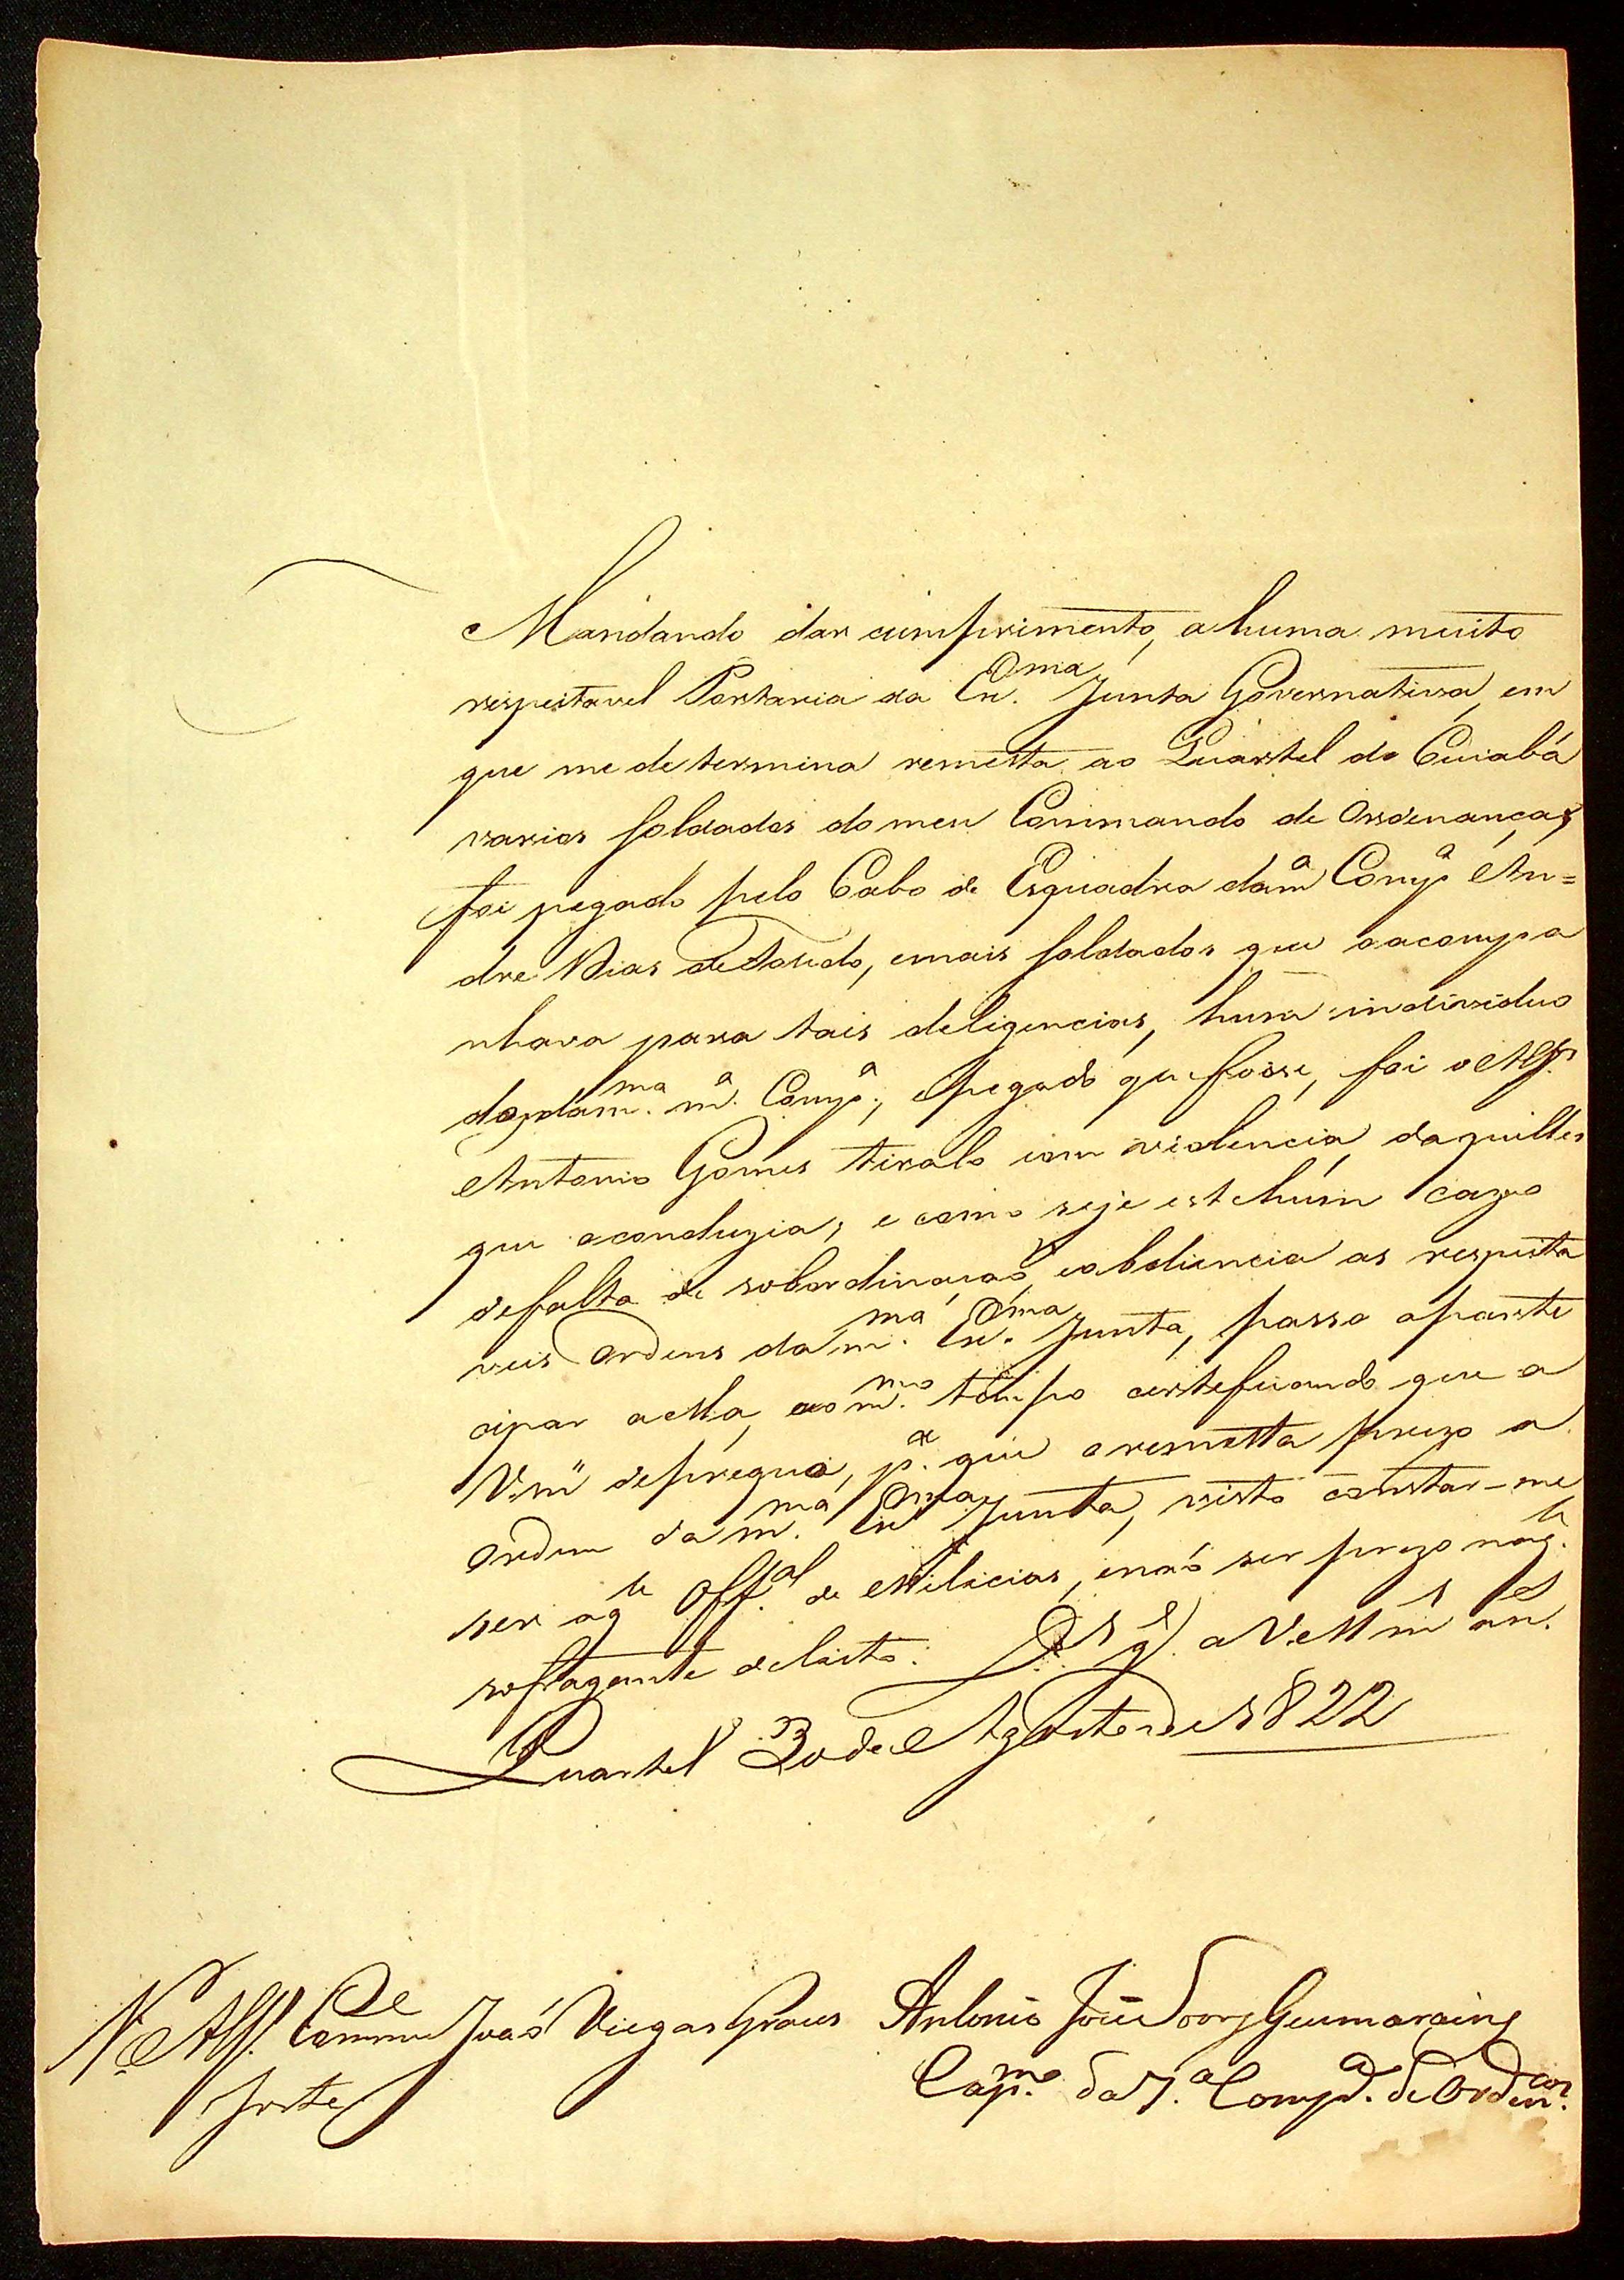 Mandando dar cumprimento, ahuma muito
respeitavel Portaria da Ex.ma Junta Governativa, em
que me determina remetta ao Quartel do Cuiabá
varios soldados domeu Commando de Ordenanças
foi pegado pelo Cabo de Esquadra dam.a Comp.a An=
dre Dias de Toledo, emais soldados que oacompa
nhava para tais deligencias, hum individuo
dam.ma m.a Comp.a, epegado que fosse, foi o Alf.
Antonio Gomes tiralo com violencia daquilles
que oconduzia, e como seje este hum cazo
defalta de sobordinaçaõ, eobdiencia as respeita
veis Ordens dam.ma Ex.ma Junta, passo aparte
cipar aella, aom.mo tempo certeficando que a
Vm.ce depregua, p.a que oremetta prezo a
Ordem dam.ma Ex.ma Junta, visto constar-me
ser aq.le Off.al de Milicias, enaõ ser prezo naq.le
soflagante delicto. D.s g.e aVM.ce m.s an.s
Quartel 30 de Agosto de 1822
Antonio José Soares Guimaraeins
S.r Alf. Comm.e Joaõ Viegas
Cap.m da 7.a Comp.a de Orden.cas
Forte